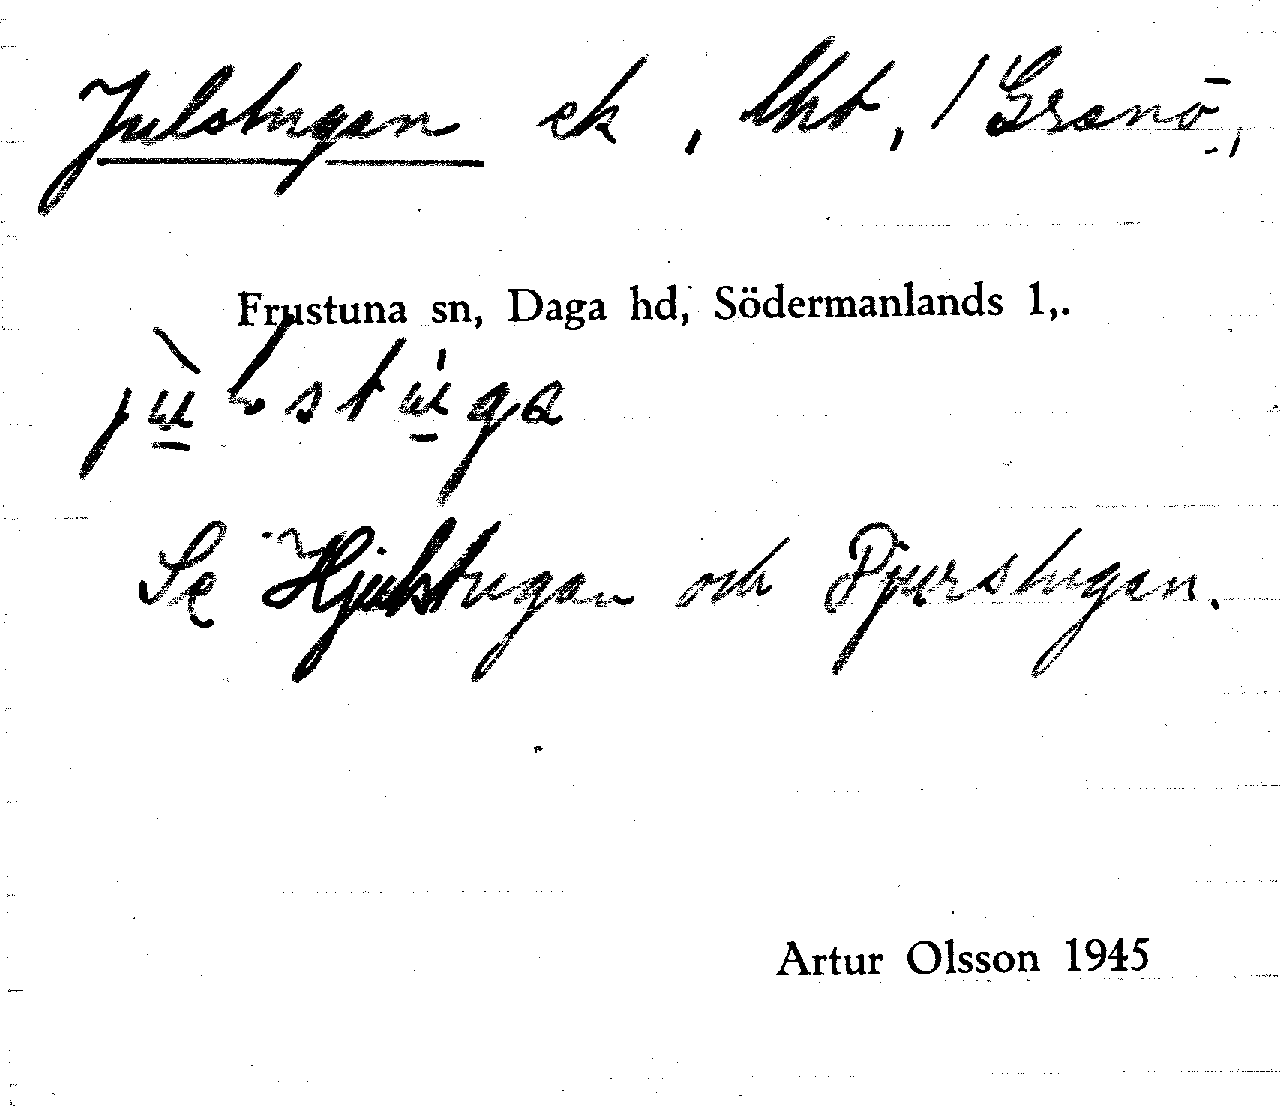 Julstugan ek, lht, / Granö,
Frustuna sn, Daga hd, Södermanlands l,.
jùlstúga
Se Hjulstugan och Pjurstugan.
Artur Olsson 1945